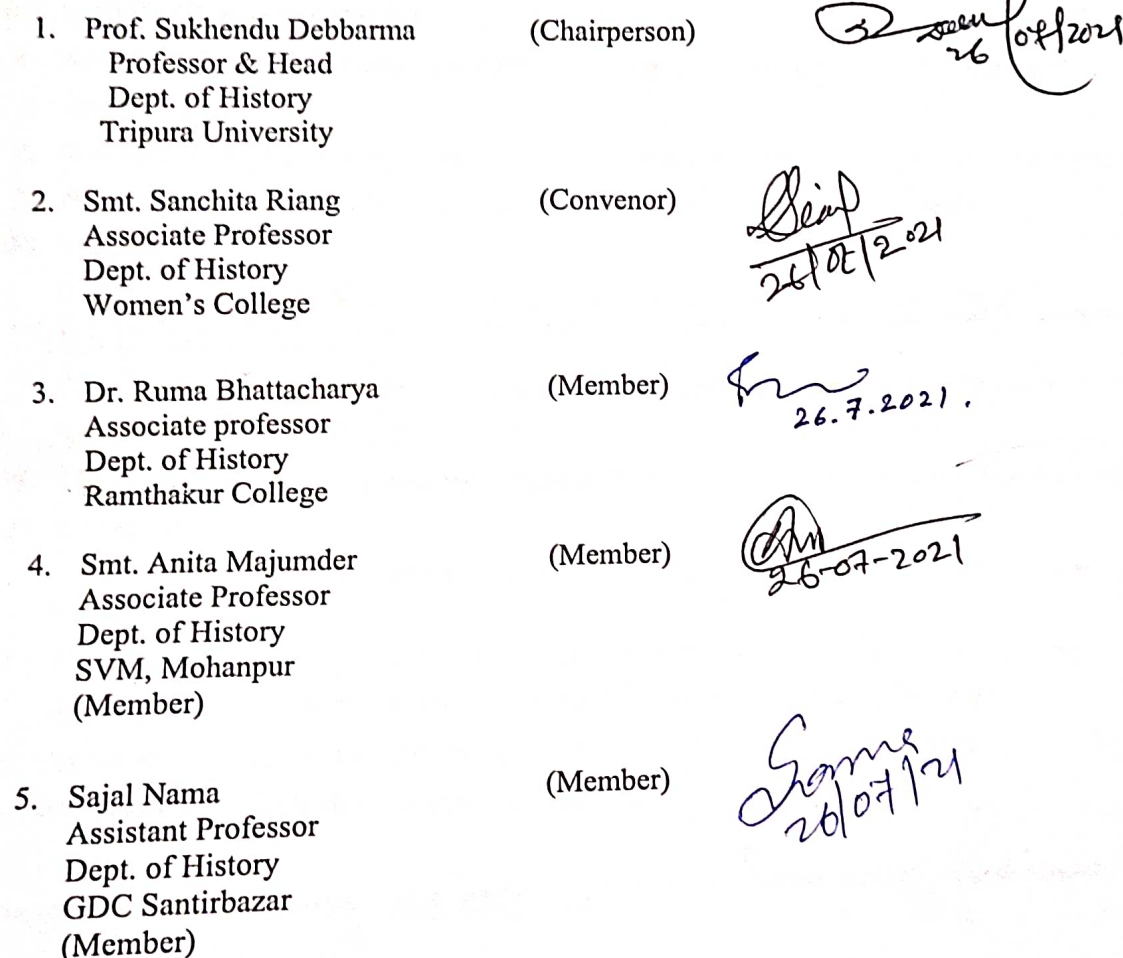 1. Prof. Sukhendu Debbarma (Chairperson)
Professor & Head
Dept. of History
Tripura University
26/07/2021
2. Smt. Sanchita Riang (Convenor)
Associate Professor
Dept. of History
Women's College
26/07/2021
3. Dr. Ruma Bhattacharya (Member)
Associate professor
Dept. of History
Ramthakur College
26.7.2021.
4. Smt. Anita Majumder (Member)
Associate Professor
Dept. of History
SVM, Mohanpur
(Member)
26-07-2021
5. Sajal Nama (Member)
Assistant Professor
Dept. of History
GDC Santirbazar
(Member)
26/07/21